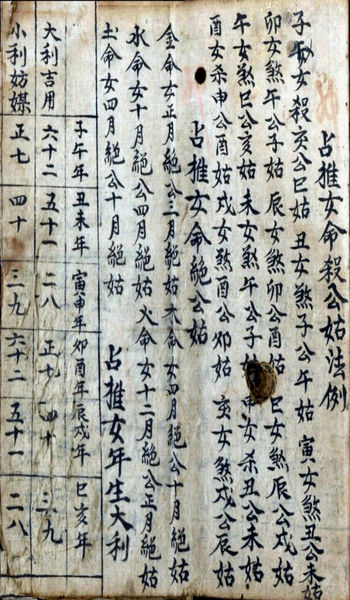 占推女命殺公姑法例
子女殺亥公巳姑 丑女煞子公午姑 寅女煞丑公未姑
卯女煞午公子姑 辰女煞卯公酉姑 巳女煞辰公戌姑
午女煞巳公亥姑 未女煞午公子姑 申女杀丑公未姑
酉女杀申公酉姑 戌女煞酉公卯姑 亥女煞戌公辰姑
占推女命絕公姑
金命女正月絕公三月絕姑 木命女四月絕公十月絕姑
水命女十月絕公四月絕姑 火命女十二月絕公正月絕姑
土命女四月絕公十月絕姑 占推女年生大利
子午年 丑未年 寅申年 卯酉年 辰戌年 巳亥年
大利吉用 六十二 五十一 二八 正七 四十 三九
小利妨媒 正七 四十 三九 六十二 五十一 二八